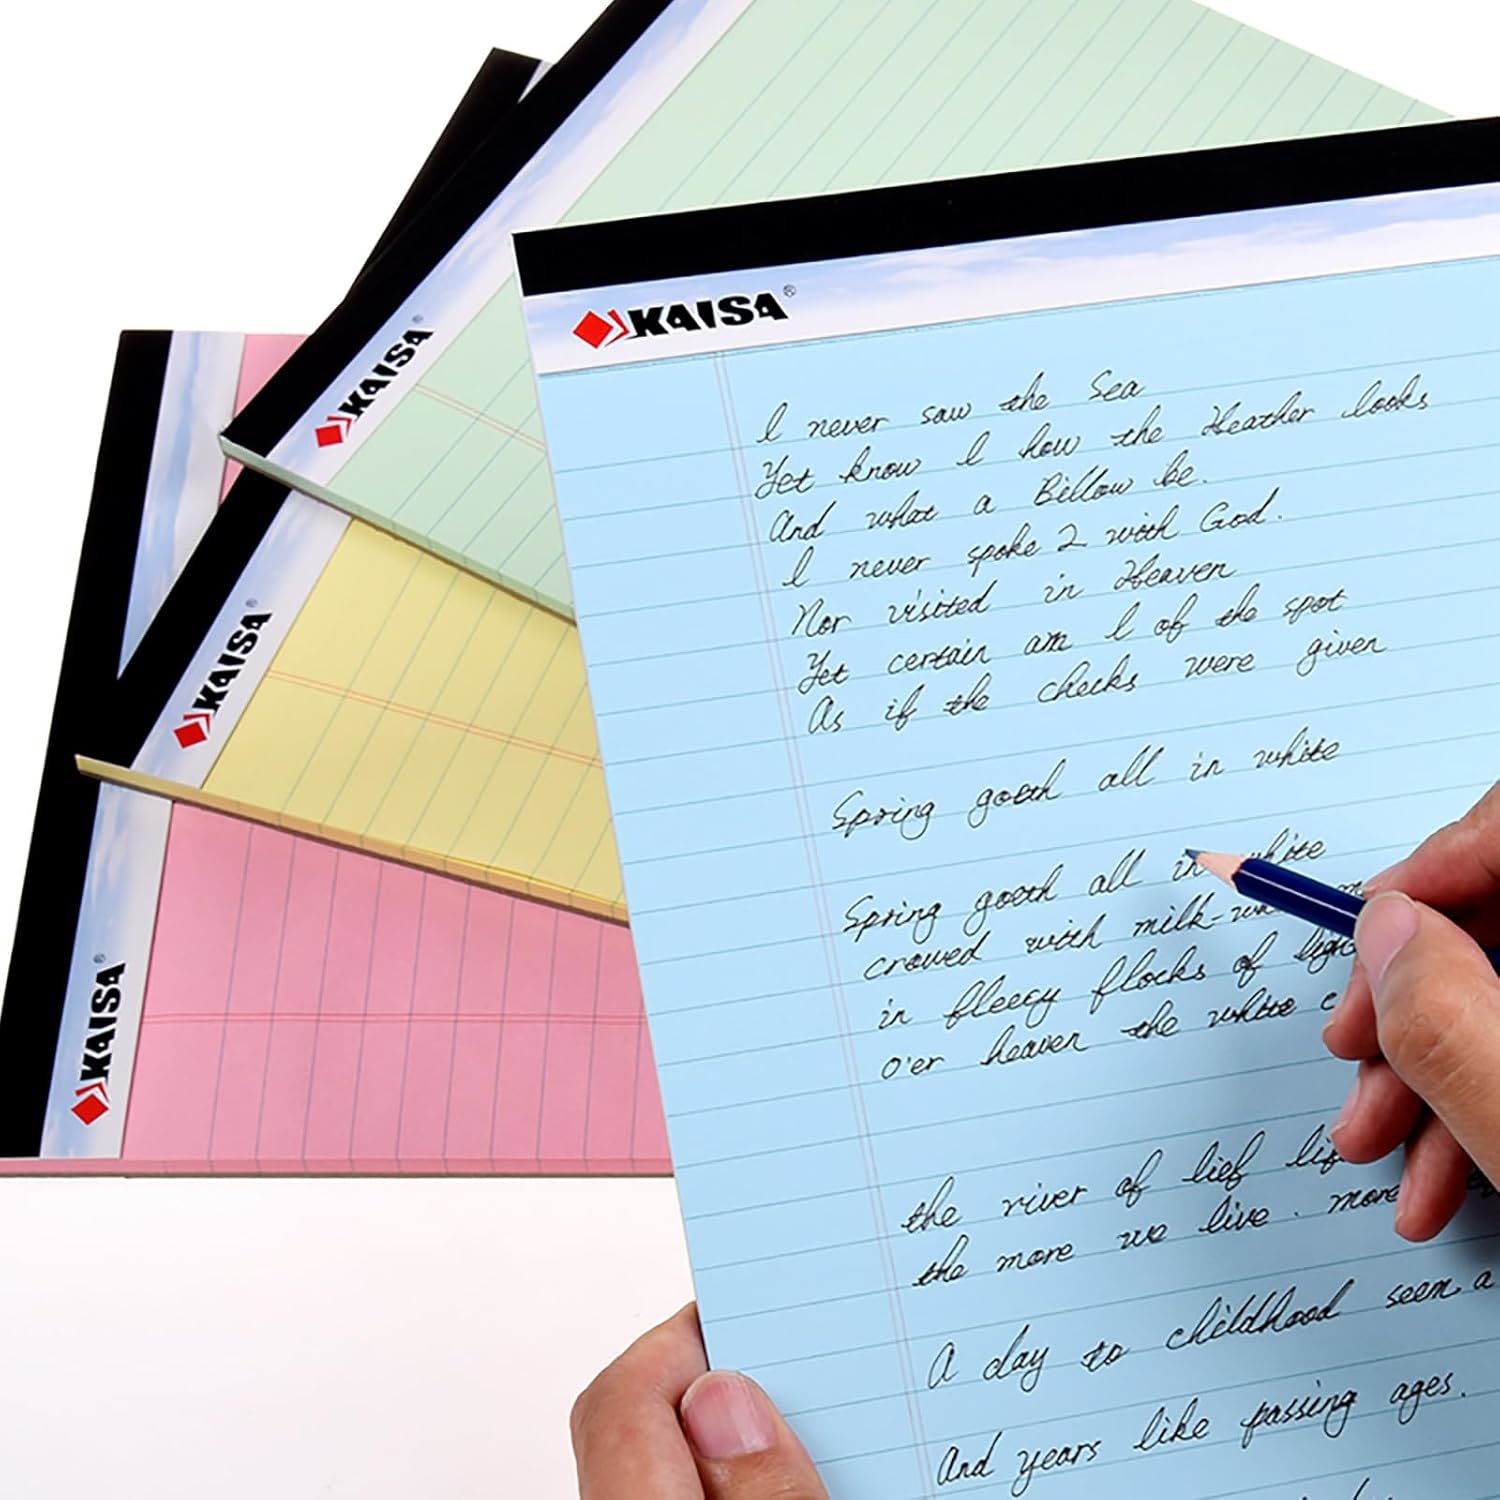 KAISA®
KAISA®
KAISA®
KAISA®
I never saw the Sea
Yet know I how the Heather looks
And what a Billow be.
I never spoke 2 with God.
Nor visited in Heaven
Yet certain am I of the spot
As if the checks were given
Spring goeth all in white
Spring goeth all in white
crowed with milk-
in fleecy flocks of
o'er heaven the white c
the river of lief
the more we live. more
A day to childhood seem a
And years like passing ages.